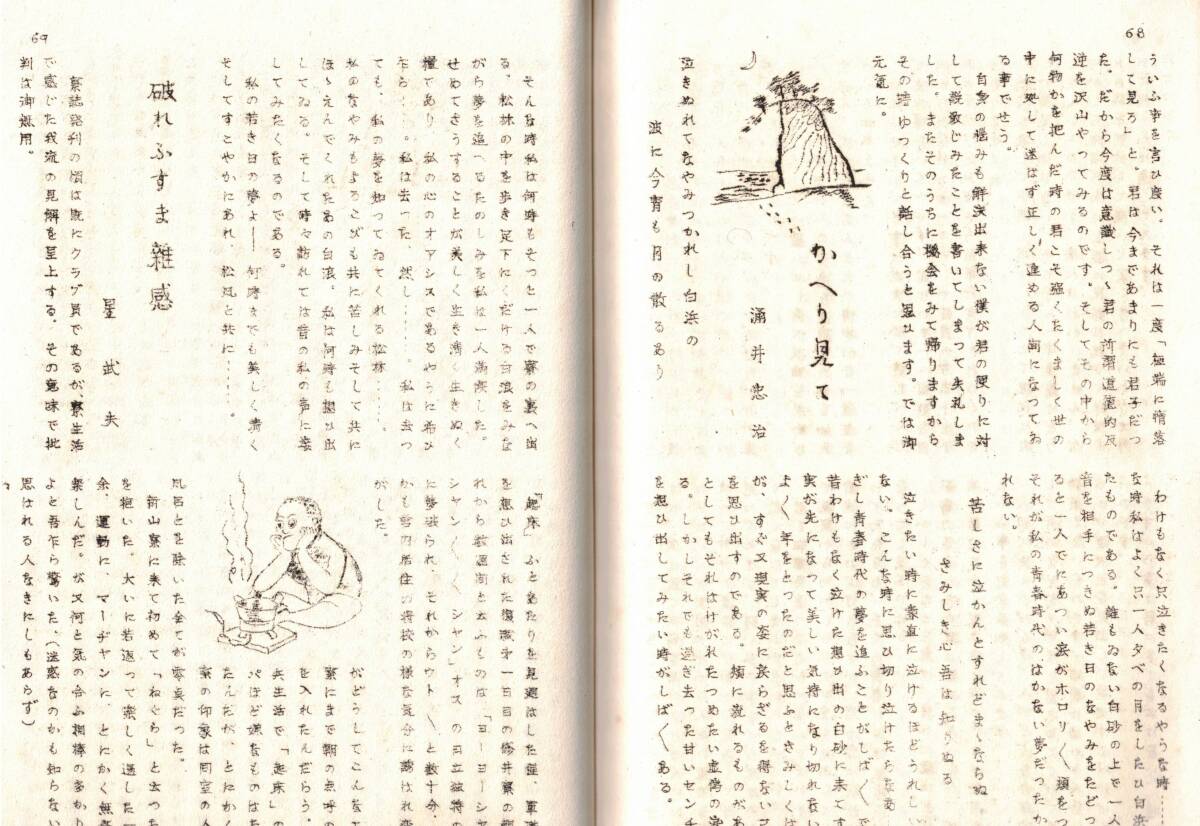 68
ういふ事を言ひ度い。それは一度「極端に惰落
して見ろ」と、君は今まであまりにも君子だつ
た。だから今度は意識しつゝ君の所謂道徳的反
逆を沢山やってみるのです。そしてその中から
何物かを把んだ時の君こそ強くたくましく世の
中に処して迷はず正しく進める人間になつてゐ
る事でせう。
自身の悩みも解決出来ない僕が君の便りに対
して説教じみたことを書いてしまって失礼しま
した。またそのうちに機会をみて帰りますから
その時ゆつくりと話し合うと思ひます。では御
元氣に。
かへり見て
涌井忠治
泣きぬれてなやみつかれし白浜の
波に今宵も月の散るあり
わけもなく只泣きたくなるやうな時……
な時私はよく只一人夕べの月をしたひ白浜
たものである。誰もゐない白砂の上で一人
音を相手につきぬ若き日のなやみをたどっ
ると一人でにあつい涙がホロリ〳〵頬を
それが私の青春時代のはかない夢だったか
れない。
苦しさに泣かんとすれどまゝならぬ
さみしき心吾は知りぬる
泣きたい時に素直に泣けるほどうれしい
ない。こんな時に思ひ切り泣けたらなあ
ぎし青春時代の夢を追ふことがしば〳〵で
昔わけもなく泣けた想ひ出の白砂に来て
実が先になって美しい気持になり切れない
よく〳〵年をとったのだと思ふとさみしくは
が、すぐ又現実の姿に戻らざるを得ない
を思ひ出すのである。頬に流れるものがあ
としてもそれはけがれたつめたい虚偽の
る。しかしそれでも過ぎ去った甘いセンチ
を想ひ出してみたい時がしば〳〵ある。
69
そんな時私は何時もそっと一人で寮の裏へ出
る。松林の中を歩き足下にくだける白浪をみな
がら夢を追へるたのしみを私は一人満喫した。
せめてさうすることが美しく生き清く生きぬく
糧であり、私の心のオアシスであるやうに希ひ
乍ら……。私は去った、然し……。私は去つ
ても、私の夢を知ってゐてくれる松林……。
私のなやみもよろこびも共に苦しみそして共に
ほゝえんでくれたあの白浪。私は何時も想ひ出
してゐる。そして時々訪れては昔の私の声に接
してみたくなるのである。
私の若き日の夢よ──何時までも美しく清く
そしてすこやかにあれ、松風と共に……。
破れふすま雑感
星武夫
寮誌発刊の頃は既にクラブ員であるが、寮生活
で感じた我流の見解を呈上する。その意味で批
判は御無用。
「起床」ふとあたりを見廻はした僅、軍
を想ひ出された復員才一日目の涌井寮の
れから数週間と云ふものは、「ヨーヨーシヤ
シヤン〳〵〳〵シヤン」オスの日立独特の
に夢破られ、それからウト〳〵と数十分、
かも雲の居住の将校の様な気分に誘はれ
がした。
がどうしてこんな
寮にまで朝の点呼の
を入れたんだらう。
兵生活で「起床」の
パほど嫌なものはな
たんだが、とにかく
寮の印象は同室の人
風呂とを除いた全てが零点だった。
新山寮に来て初めて「ねぐら」と云つた
を抱いた。大いに若返って楽しく過した
余、運動に、マーヂヤンに、とにかく無
楽しんだ。が又何と気の合ふ相棒の多かり
よと吾乍ら驚いた、(迷惑なのかも知らない
思はれる人なきにしもあらず)